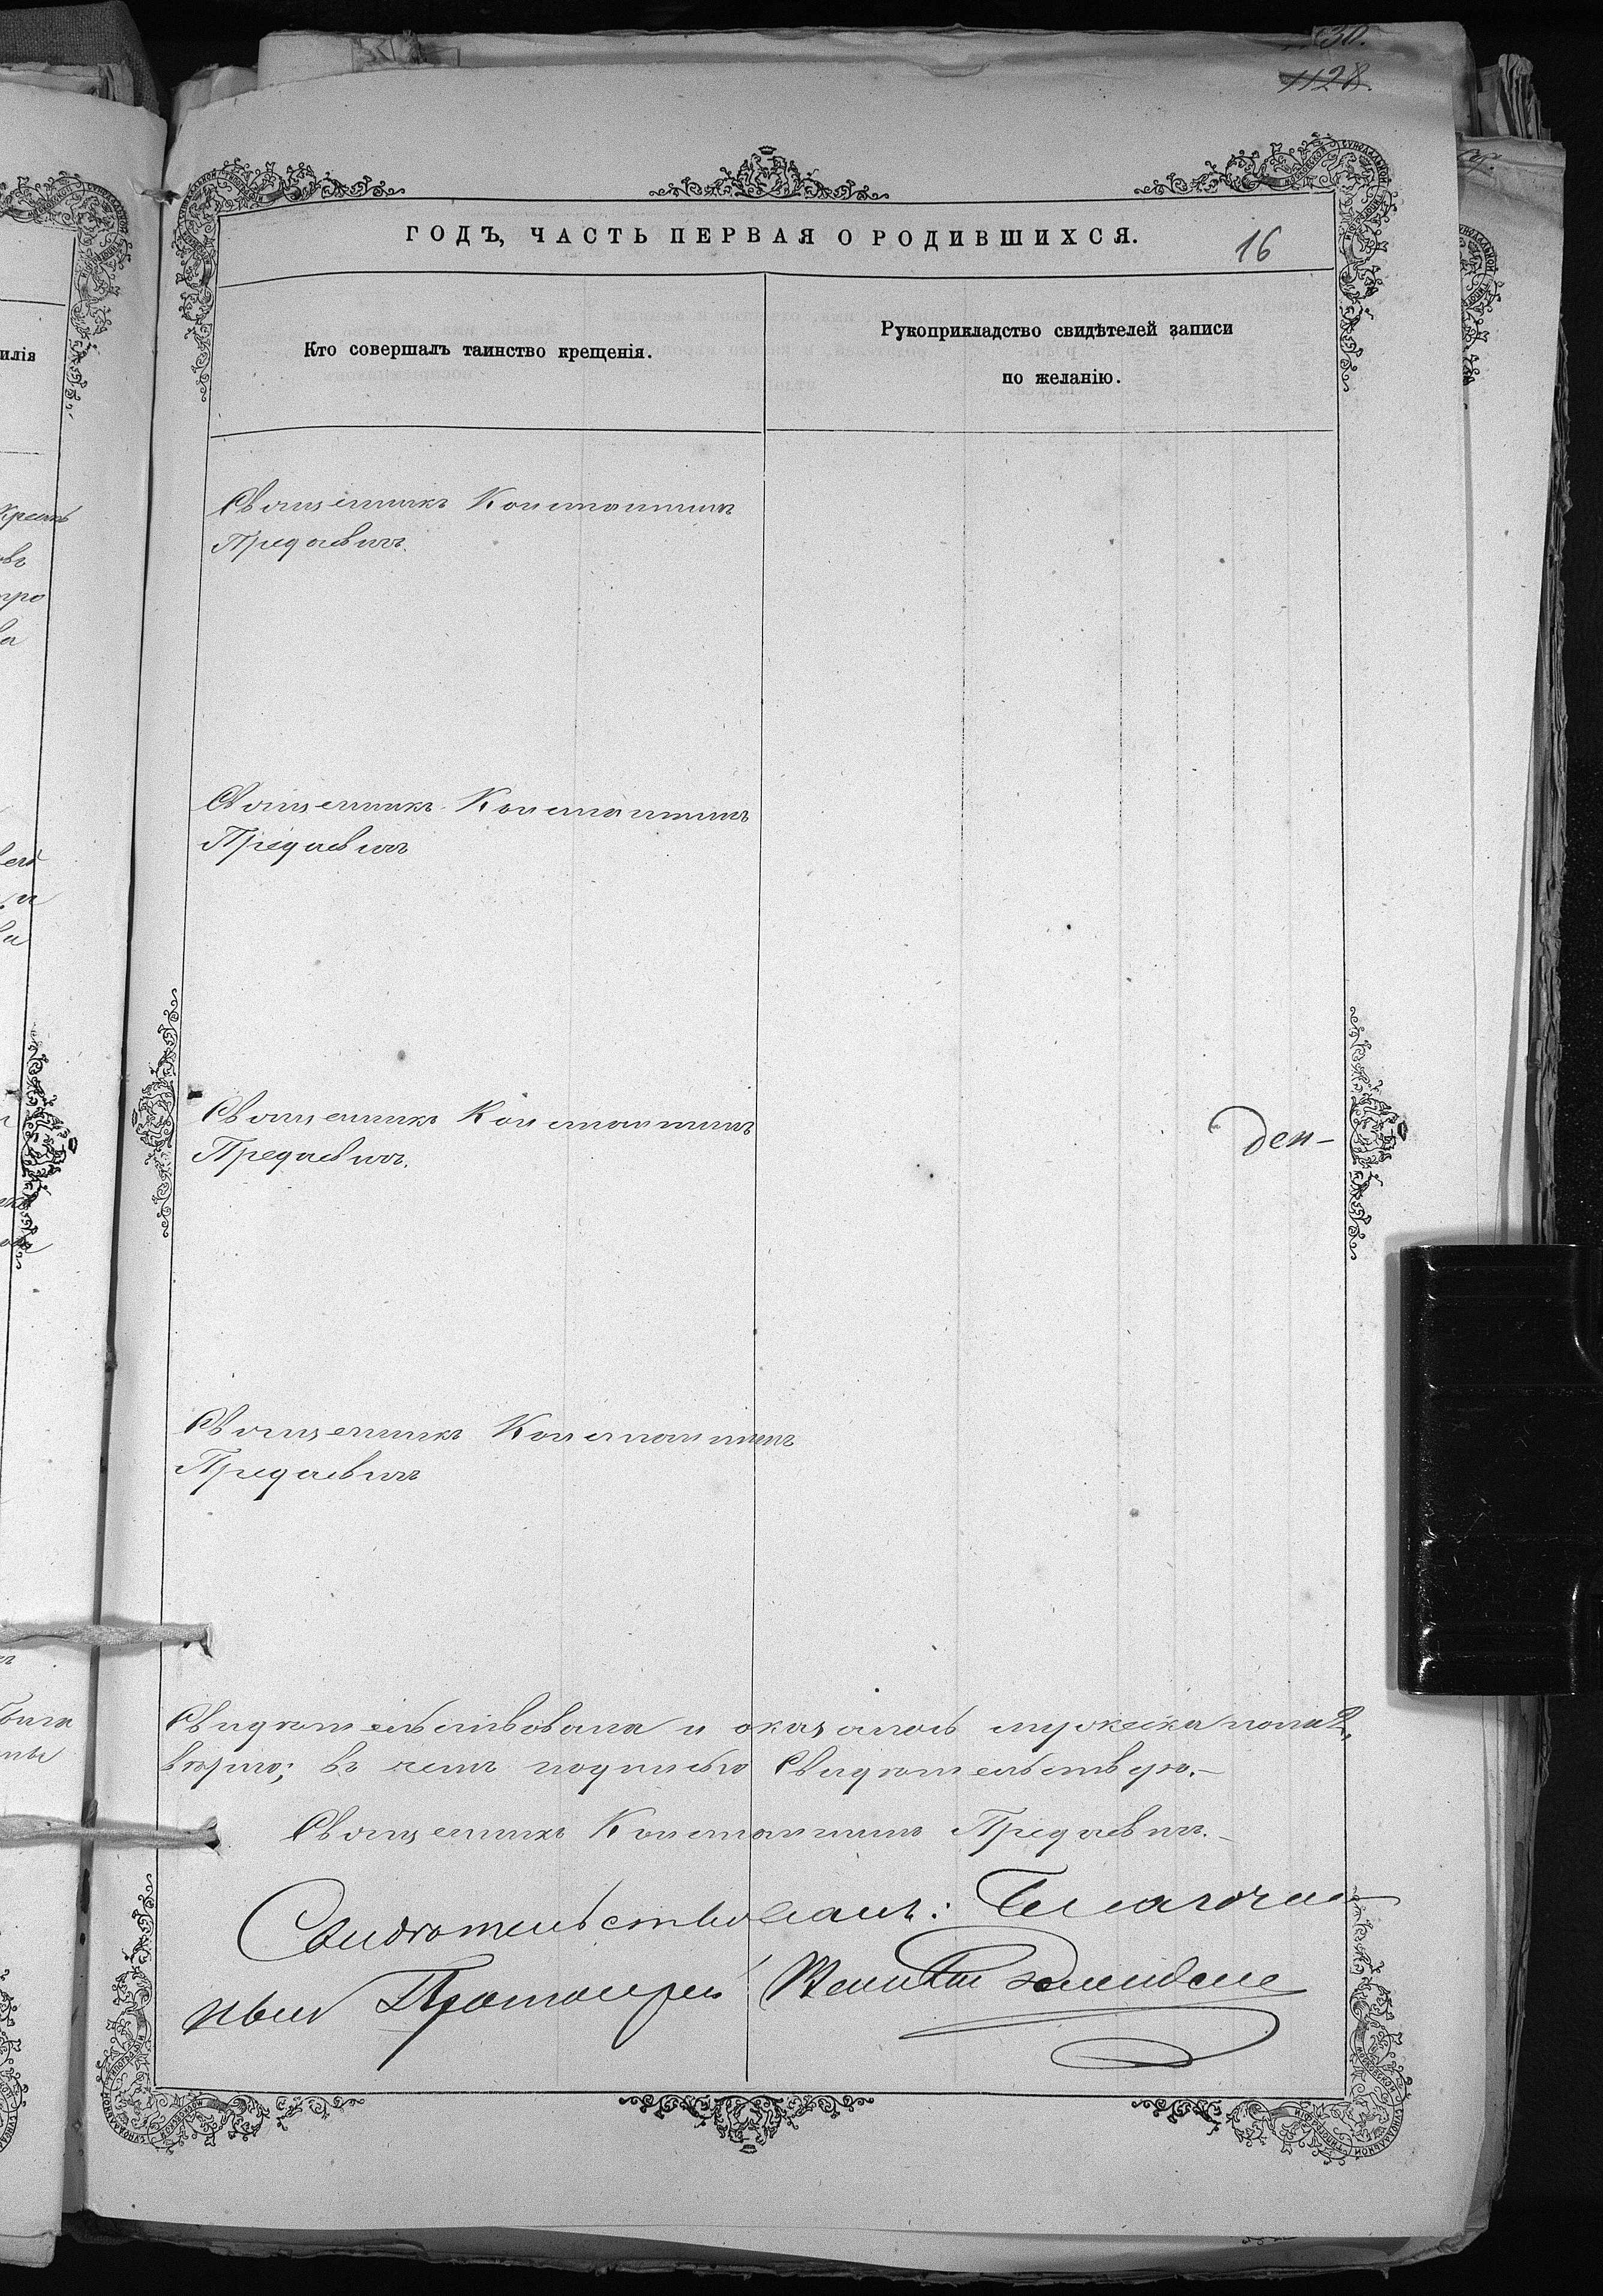 30.
1128.
ГОДЪ, ЧАСТЬ ПЕРВАЯ О РОДИВШИХСЯ.
16
Кто совершалъ таинство крещенія.
Рукоприкладство свидѣтелей записи
по желанію.
Священникъ Константинъ
Предаевичъ.
Священникъ Константинъ
Предаевичъ
Священникъ Константинъ
Предаевичъ.
ден-
Священникъ Константинъ
Предаевичъ
и оказалось
вѣрно; въ чемъ подписью свидѣтельствую.-
Священникъ Константинъ Предаевичъ.-
Свидѣтельствовалъ: Благочин-
ный Протоіерей